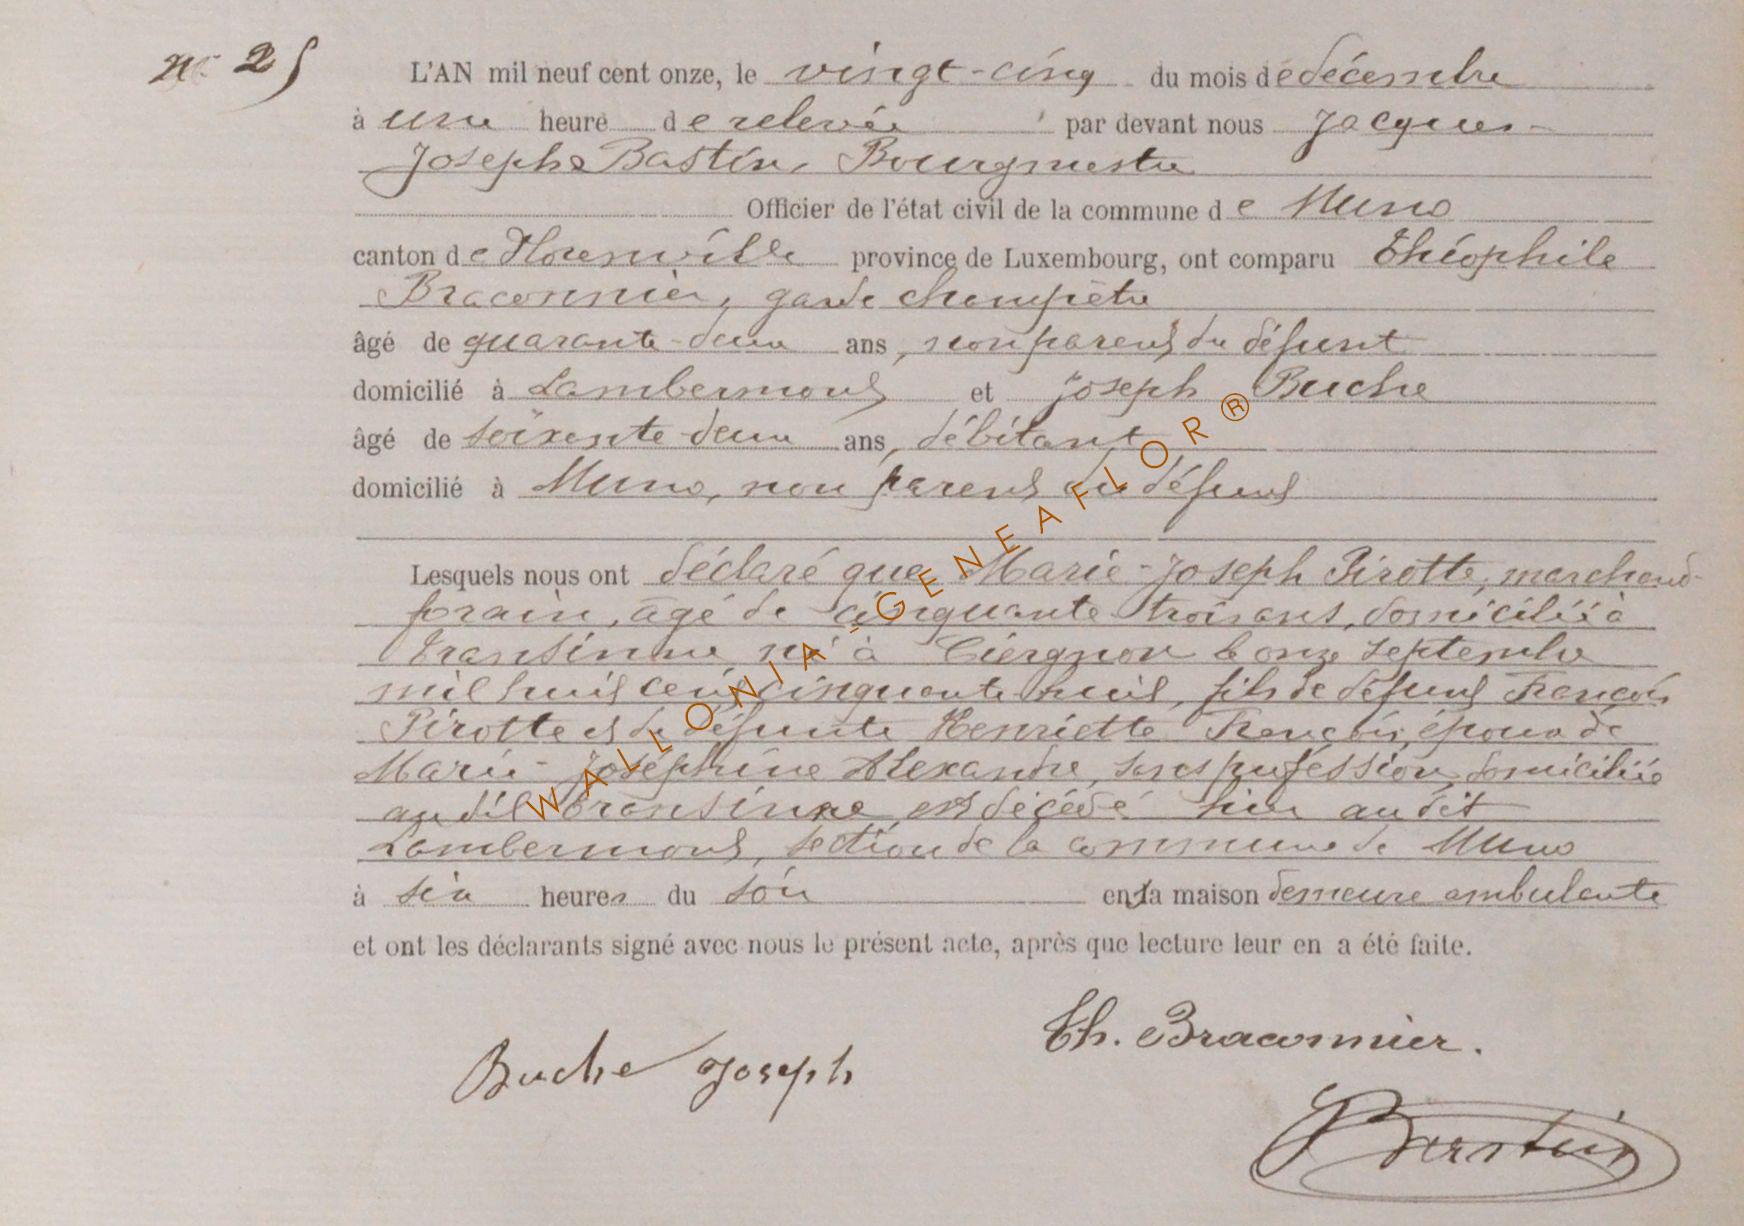 N° 25
L'AN mil neuf cent onze, le vingt-cinq du mois de décembre
à une heure de relevée par devant nous Jacques-
Joseph Bastin, Bourgmestre
Officier de l'état civil de la commune de Muno
canton de Florenville province de Luxembourg, ont comparu Théophile
Braconnier, garde champêtre
âgé de quarante-deux ans, non parent du défunt
domicilié à Lambermont et Joseph Buche
âgé de soixante-deux ans, débitant
domicilié à Muno, non parent du défunt
Lesquels nous ont déclaré que Marie-Joseph Pirotte, marchand-
forain, âgé de cinquante trois ans, domicilié à
Transinne né à Ciergnon le onze septembre
mil huit cent cinquante huit, fils de défunt François
Pirotte et de défunte Henriette François, époux de
Marie-Joséphine Alexandre, sans profession, domiciliée
au dit Transinne est décédé hier au dit
Lambermont, section de la commune de Muno
à six heures du soir en sa maison demeure ambulante
et ont les déclarants signé avec nous le présent acte, après que lecture leur en a été faite.
Th. Braconnier.
Buche Joseph
JBastin
WALLONIA-GENEAFLOR®